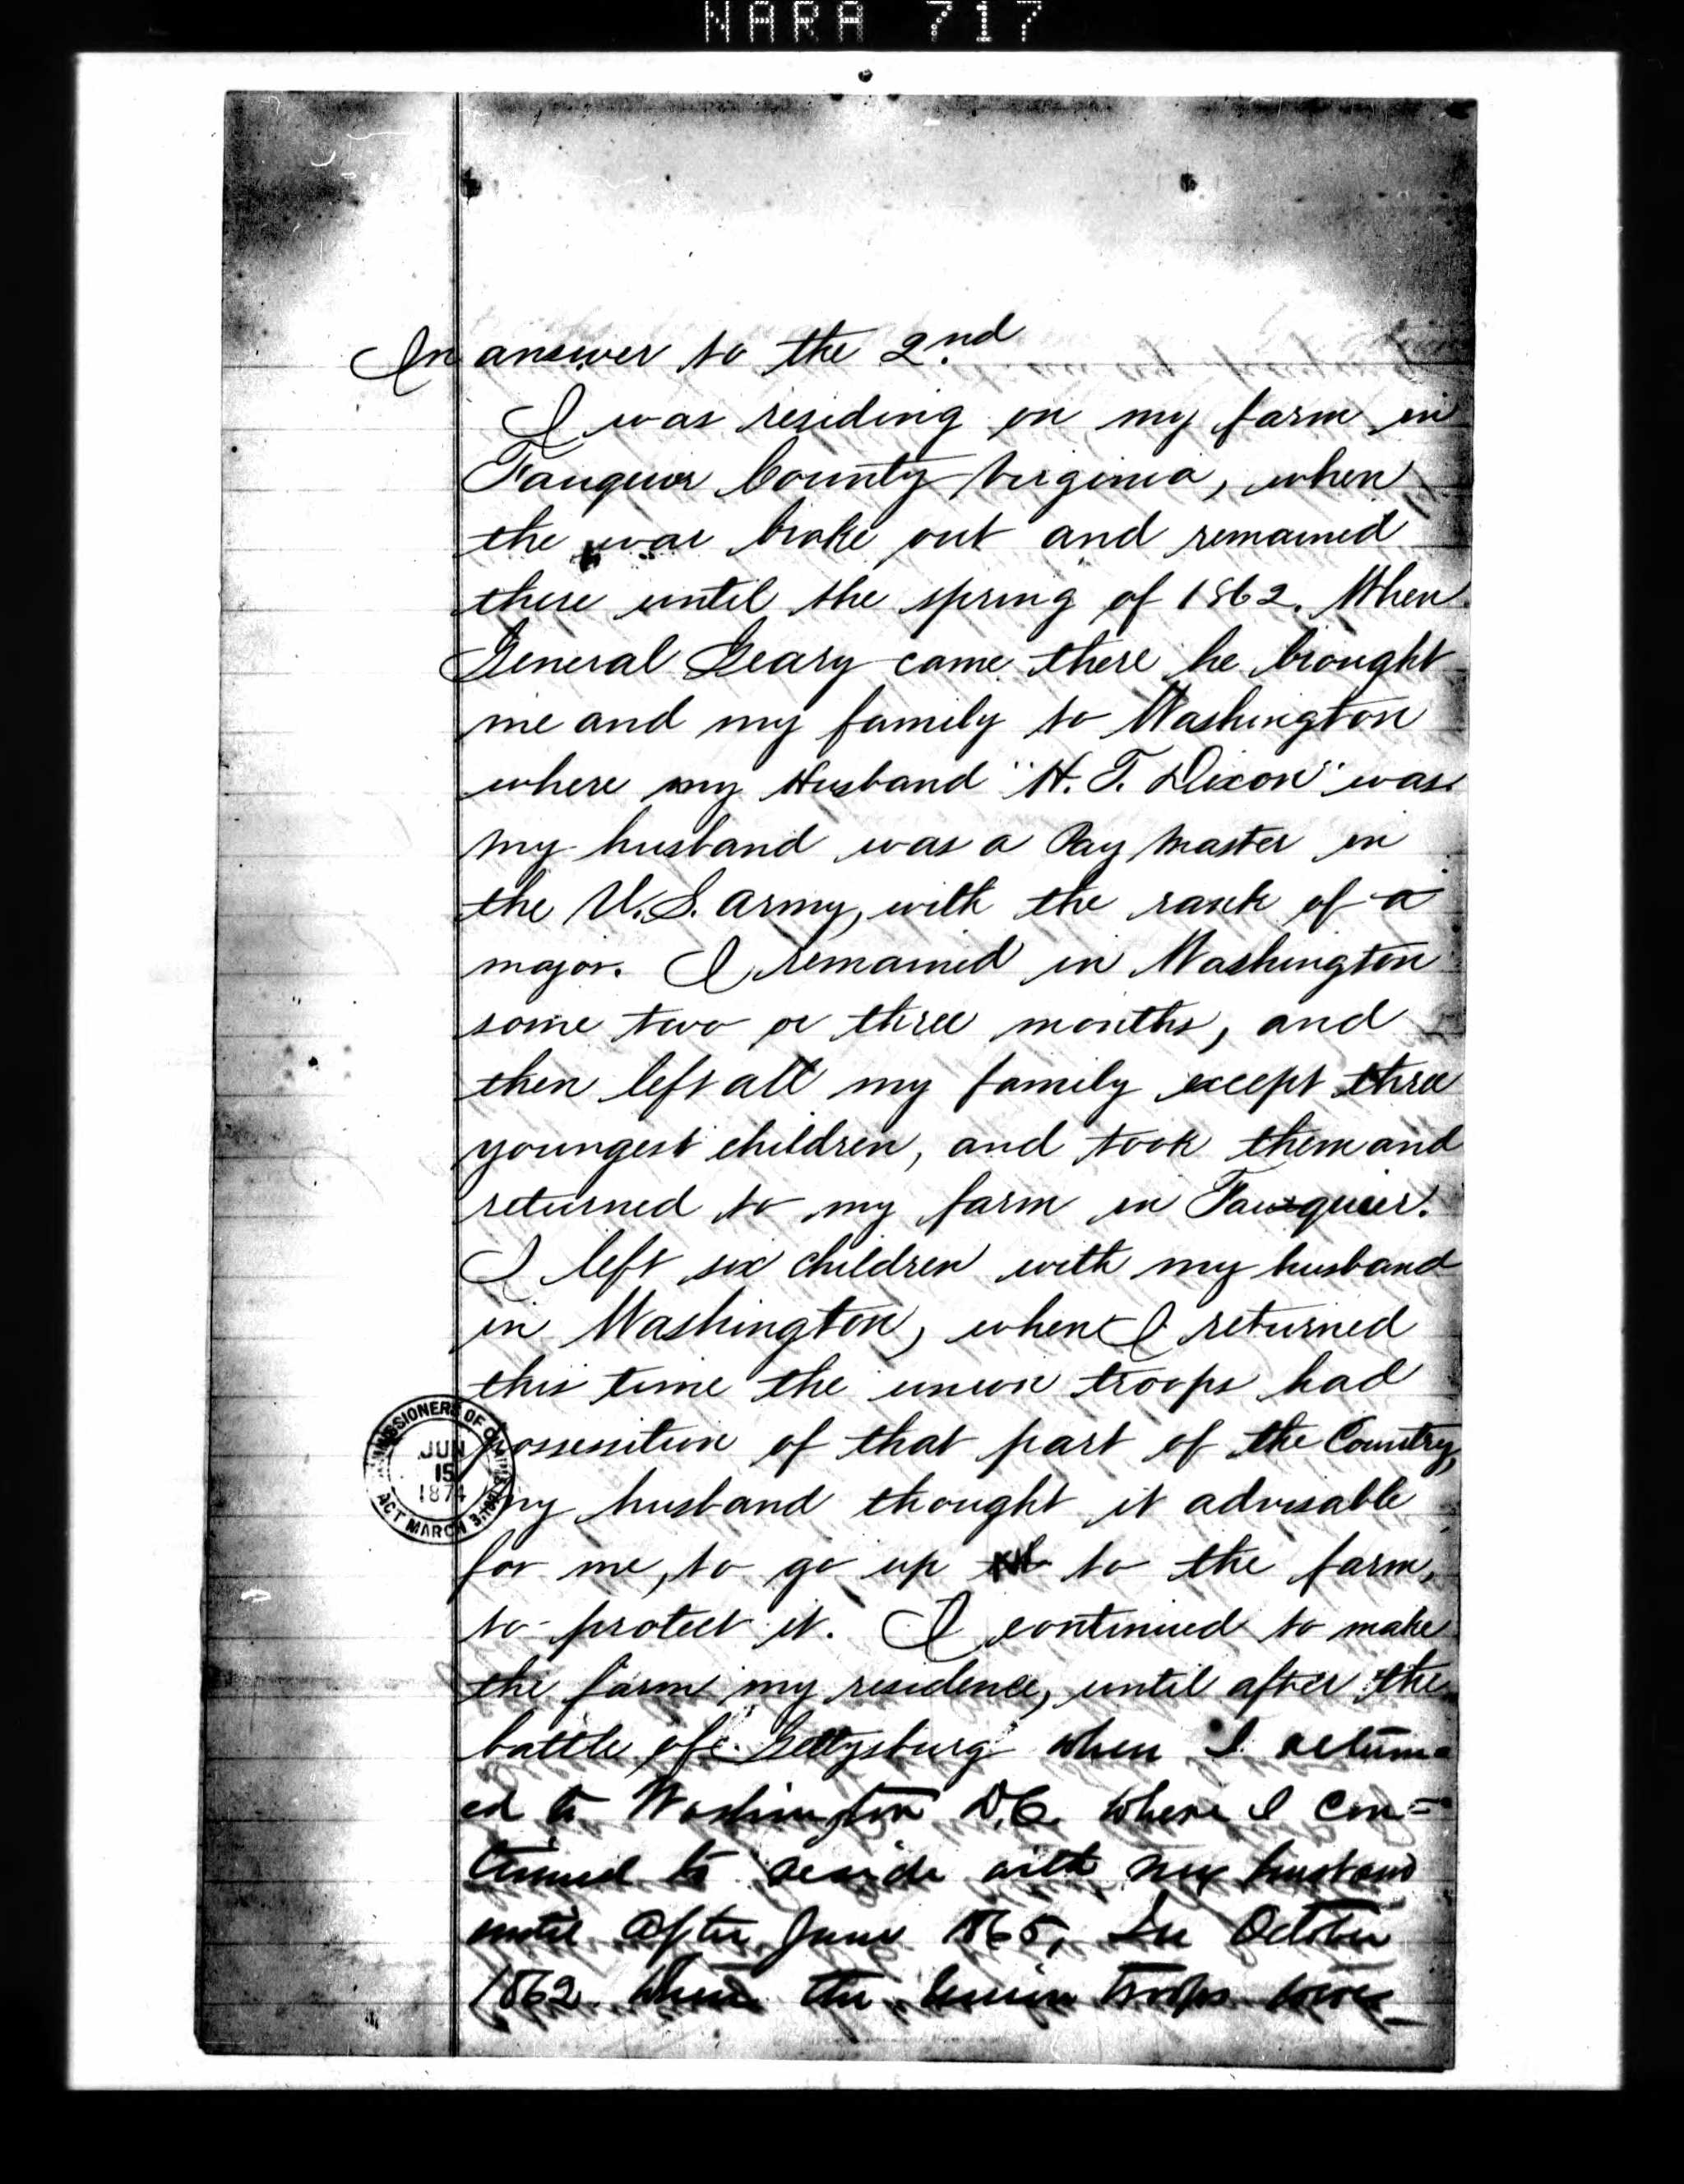 NARA 717
In answer to the 2nd.
I was residing on my farm in
Fauquier County Virginia, when
the war broke out and remained
there until the spring of 1862. When
General Geary came there he brought
me and my family to Washington
where my Husband "H. T. Dixon" was
my husband was a Pay Master in
the U.S. Army, with the rank of a
major. I remained in Washington
some two or three months, and
then left all my family except three
youngest children, and took them and
returned to my farm in Fauquier.
I left six children with my husband
in Washington, when I returned
this time the union troops had
possession of that part of the Country,
my husband thought it advisable
for me, to go up to the farm,
to protect it. I continued to make
the farm my residence, until after the
battle of Gettysburg when I return=
ed to Washington D.C. where I con=
tinued to reside with my husband
until after June 1865, In October
1862 when the Union troops were
COMMISSIONERS OF CLAIMS
JUN
15
1874
ACT MARCH 3, 1871